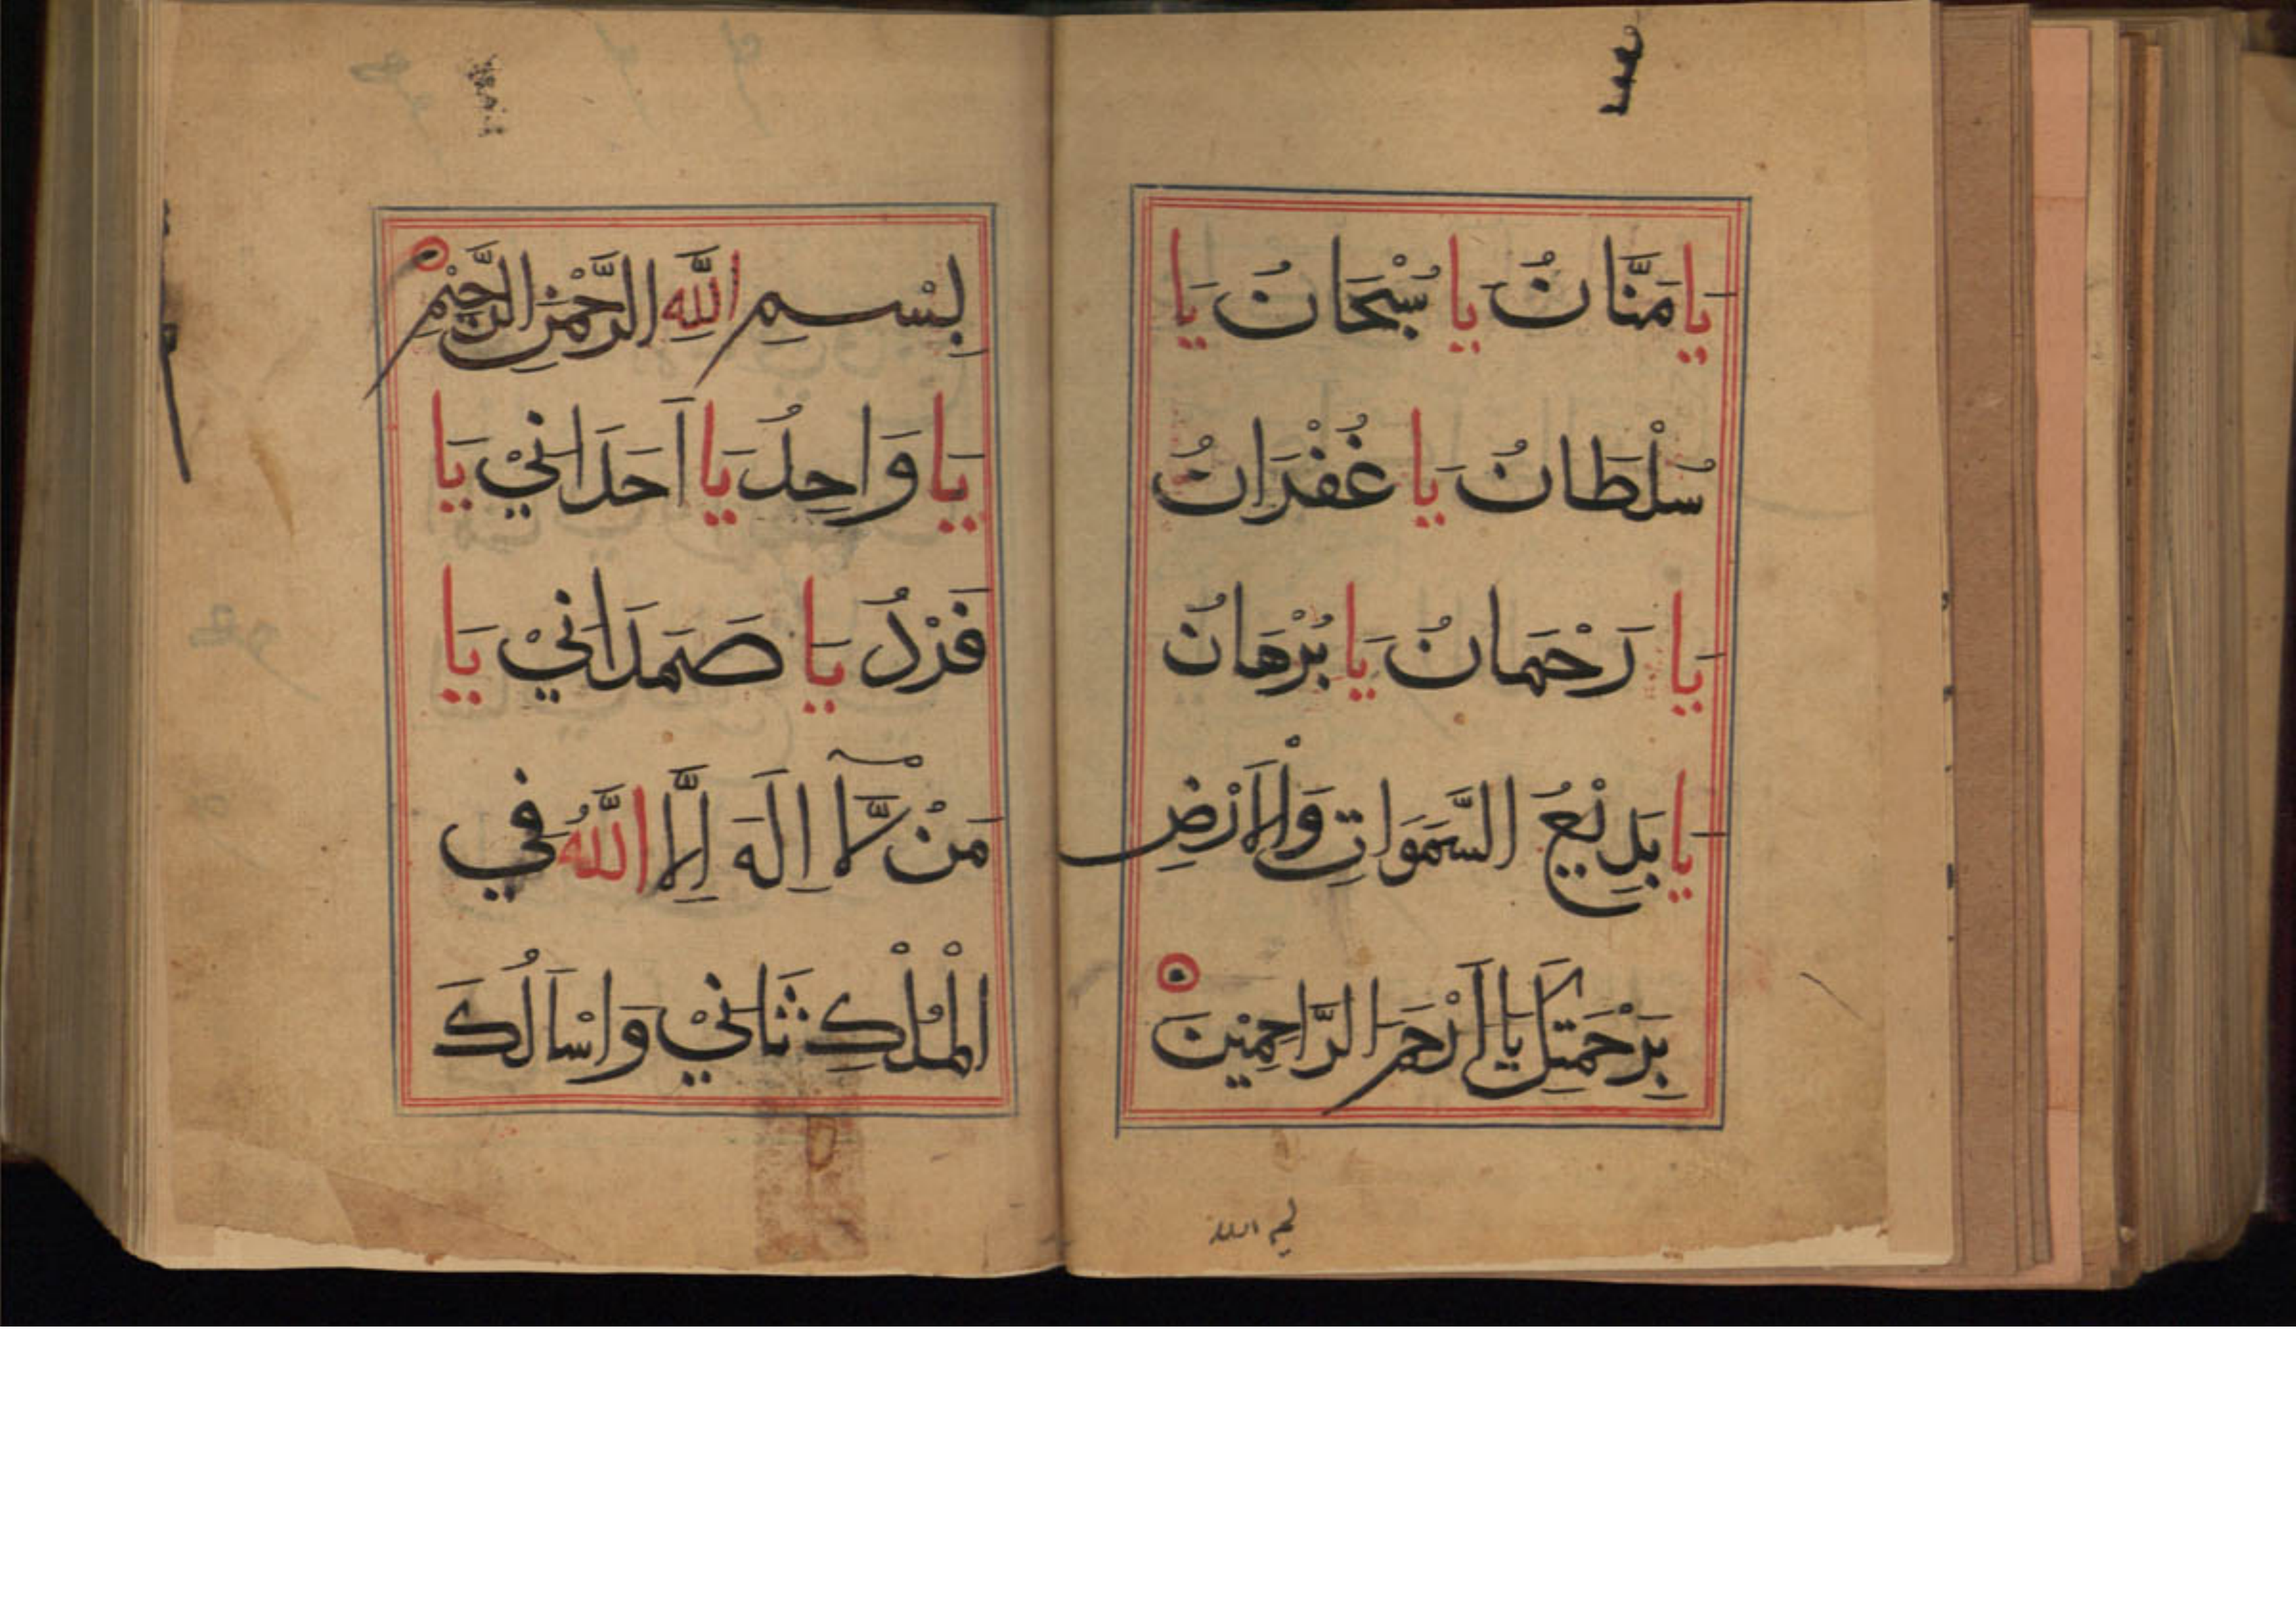 يَا مَنَّانُ يا سُبْحَانُ يَا
سُلْطَانُ يَا غُفْرَانُ
يَا رَحْمَانُ يَا بُرْهَانُ
يا بَدِيْعُ السَّمَوَاتِ وَالْاَرْضِ
بِرَحْمَتِكَ يَا اَرْحَمَ الرَّاحِمِيْنَ
بسم الله
بِسْمِ اللَّهِ الرَّحْمٰنِ الرَّحِيْمِ
يَا وَاحِدُ يَا اَحَدَانِيْ يَا
فَرْدُ يَا صَمَدَانِيْ يَا
مَنْ لَّآ اِلَهَ اِلَّا اللَّهُ فِي
الْمُلْكِ ثَانِيْ وَاسْاَلُكَ